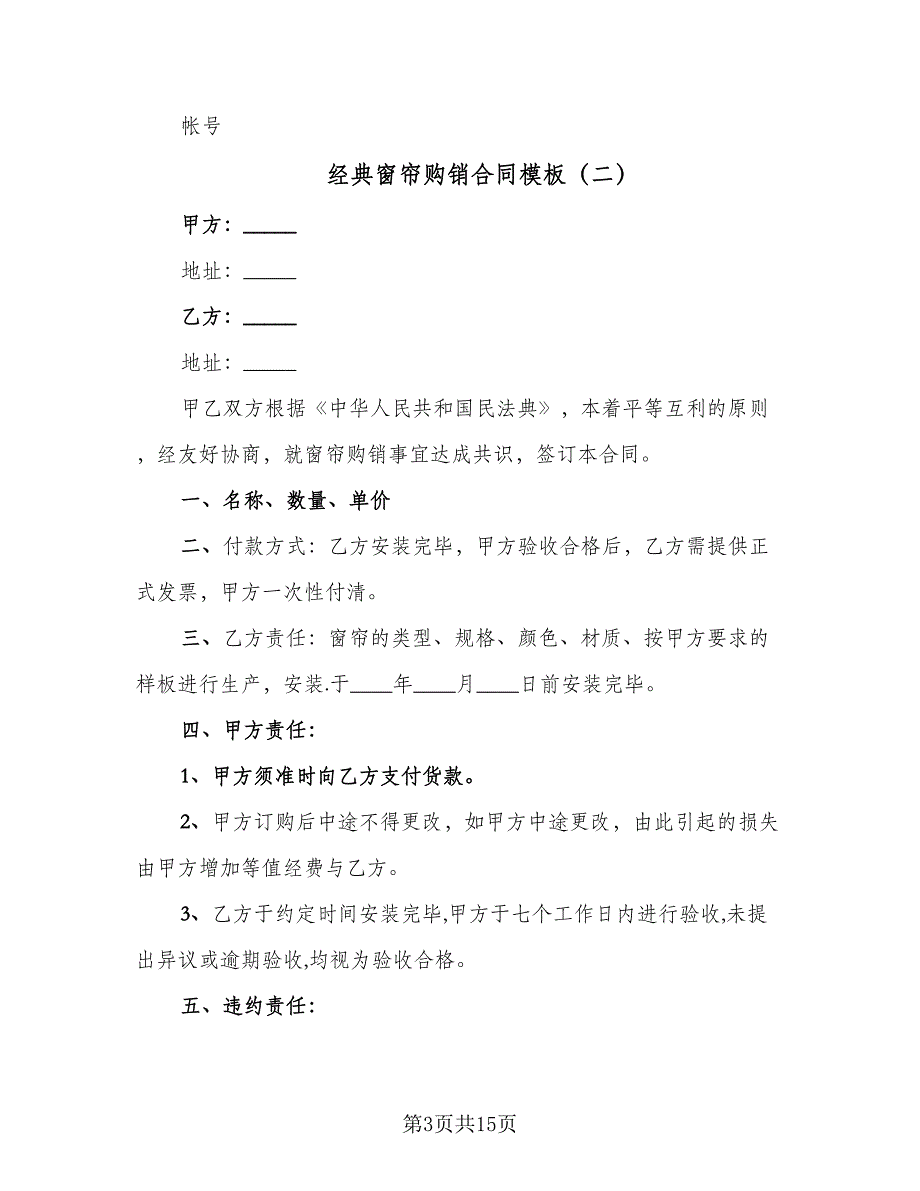 帐号
经典窗帘购销合同模板（二）
甲方：_____
地址：_____
乙方：_____
地址：_____
甲乙双方根据《中华人民共和国民法典》，本着平等互利的原则
，经友好协商，就窗帘购销事宜达成共识，签订本合同。
一、名称、数量、单价
二、付款方式：乙方安装完毕，甲方验收合格后，乙方需提供正
式发票，甲方一次性付清。
三、乙方责任：窗帘的类型、规格、颜色、材质、按甲方要求的
样板进行生产，安装.于____年____月____日前安装完毕。
四、甲方责任：
1、甲方须准时向乙方支付货款。
2、甲方订购后中途不得更改，如甲方中途更改，由此引起的损失
由甲方增加等值经费与乙方。
3、乙方于约定时间安装完毕,甲方于七个工作日内进行验收,未提
出异议或逾期验收,均视为验收合格。
五、违约责任：
第3页共15页